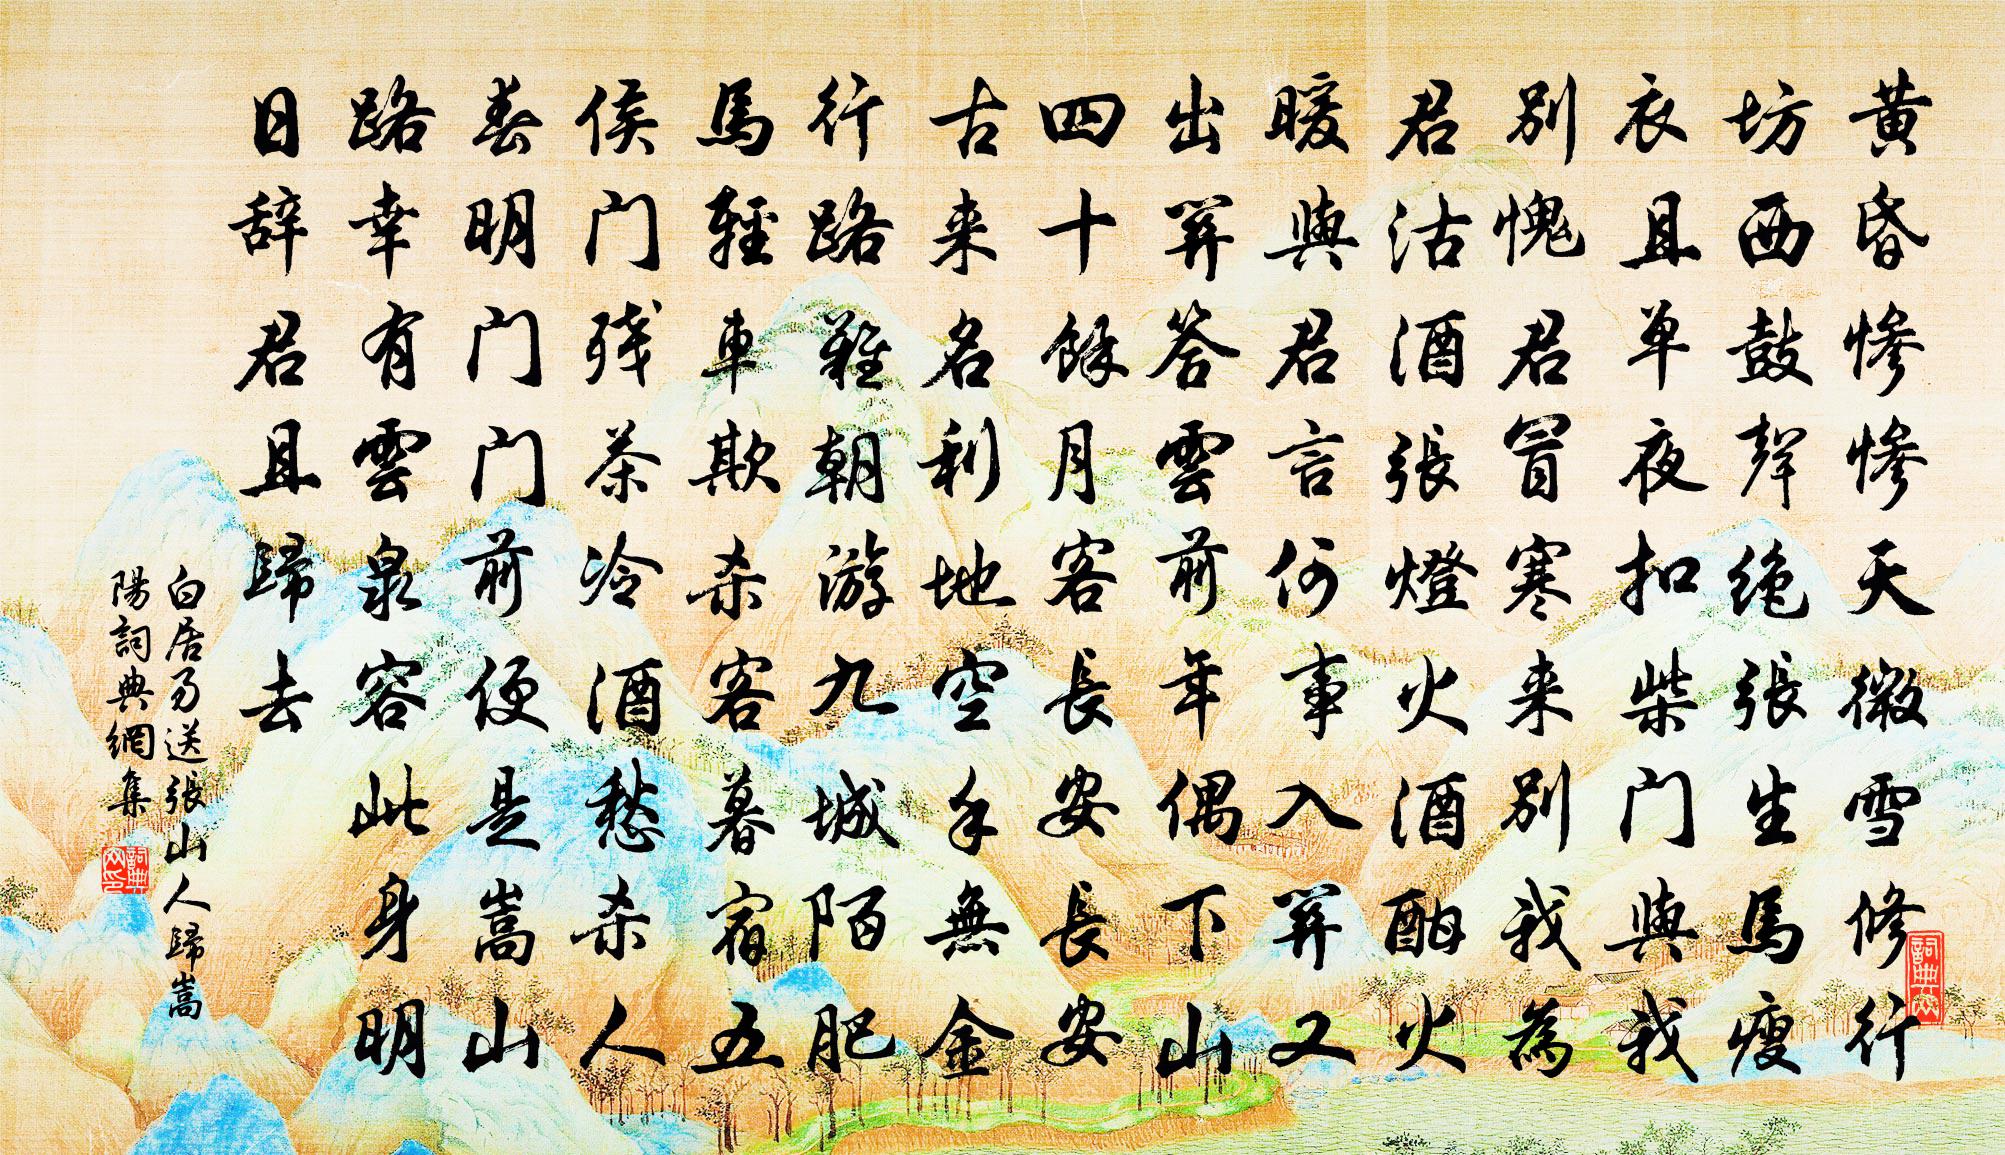 黄昏慘慘天微雪修行
坊西鼓聲绝張生馬瘦
衣且单夜扣柴门與我
别愧君冒寒来别我為
君沽酒張燈火酒酣火
暖與君言何事入关又
出关答雲前年偶下山
四十餘月客長安長安
古来名利地空手無金
行路難朝游九城陌肥
馬輕車欺杀客暮宿五
侯门残茶冷酒愁杀人
春明门门前便是嵩山
路幸有雲泉容此身明
日辞君且歸去
白居易送張山人歸嵩
陽詞典網集